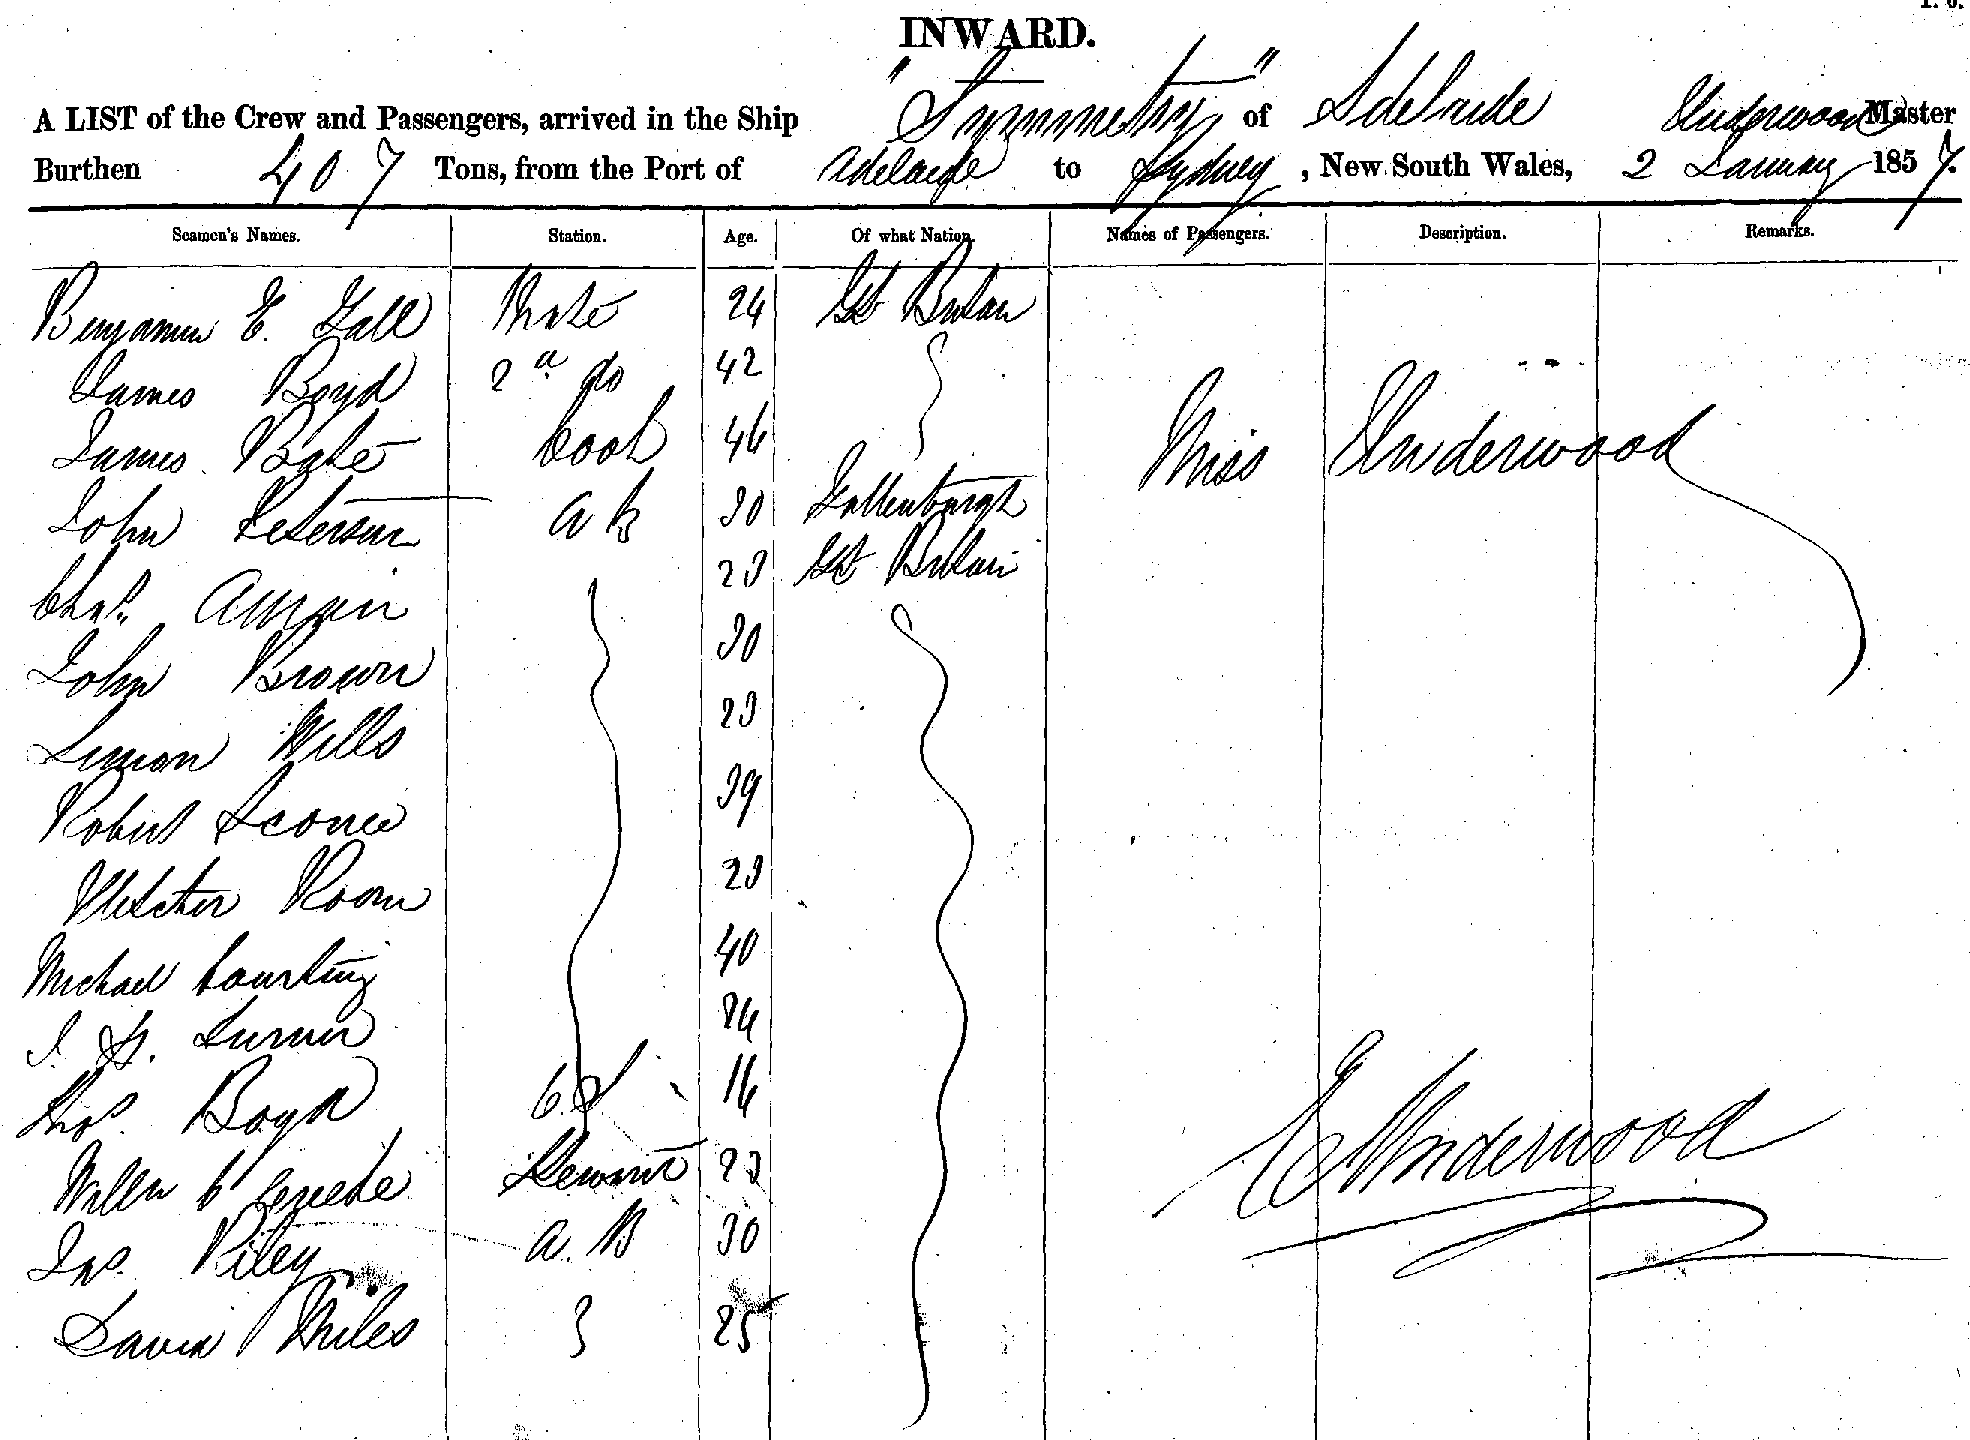 INWARD.
A LIST of the Crew and Passengers, arrived in the Ship "Symmetry" of Adelaide Underwood Master
Burthen 407 Tons, from the Port of Adelaide to Sydney, New South Wales, 2 January 1857.
Seamen's Names. Station. Age. Of what Nation. Names of Passengers. Description. Remarks.
Benjamin E. Mate 24 Gt Britain
James Boyd 2d do 42
James Cook 46 Miss Underwood
John Peterson A B 30
Chas. 23 Gt Britain
John Brown 30
Simon Wills 23
Robert 39
Fletcher Room 23
Michael 40
J. Turner 24
Thos. Boyd 16
C Steward 23
Jas. Riley A. B 30
David Miles 25
E Underwood